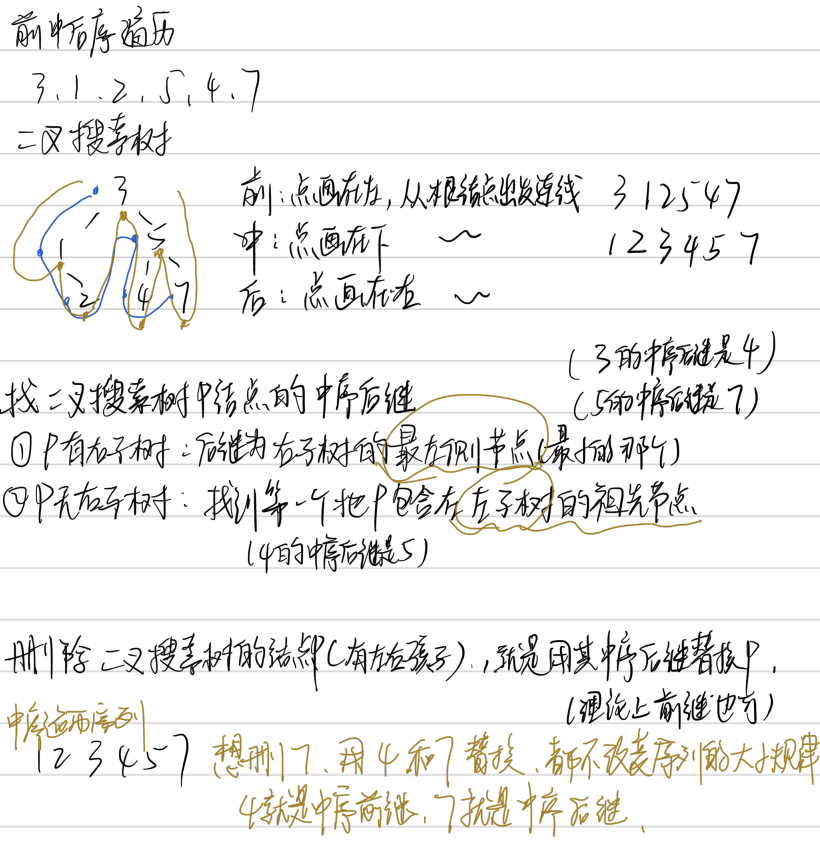 前中后序遍历
3、1、2、5、4、7
二叉搜索树
3
1 5
2 4 7
前：点画在左，从根结点出发连线 3 1 2 5 4 7
中：点画在下 ～ 1 2 3 4 5 7
后：点画在右 ～
(3的中序后继是4)
找二叉搜索树P结点的中序后继 (5的中序后继是7)
①P有右子树：后继为右子树的最左侧节点(最小的那个)
②P无右子树：找到第一个把P包含在左子树的祖先节点
(4的中序后继是5)
删除二叉搜索树的结点P(有左右孩子)，就是用其中序后继替换P，
(理论上前继也可)
中序遍历序列
1 2 3 4 5 7 想删 7、用4和7替换、都不改变序列的大小规律
4就是中序前继，7就是中序后继，